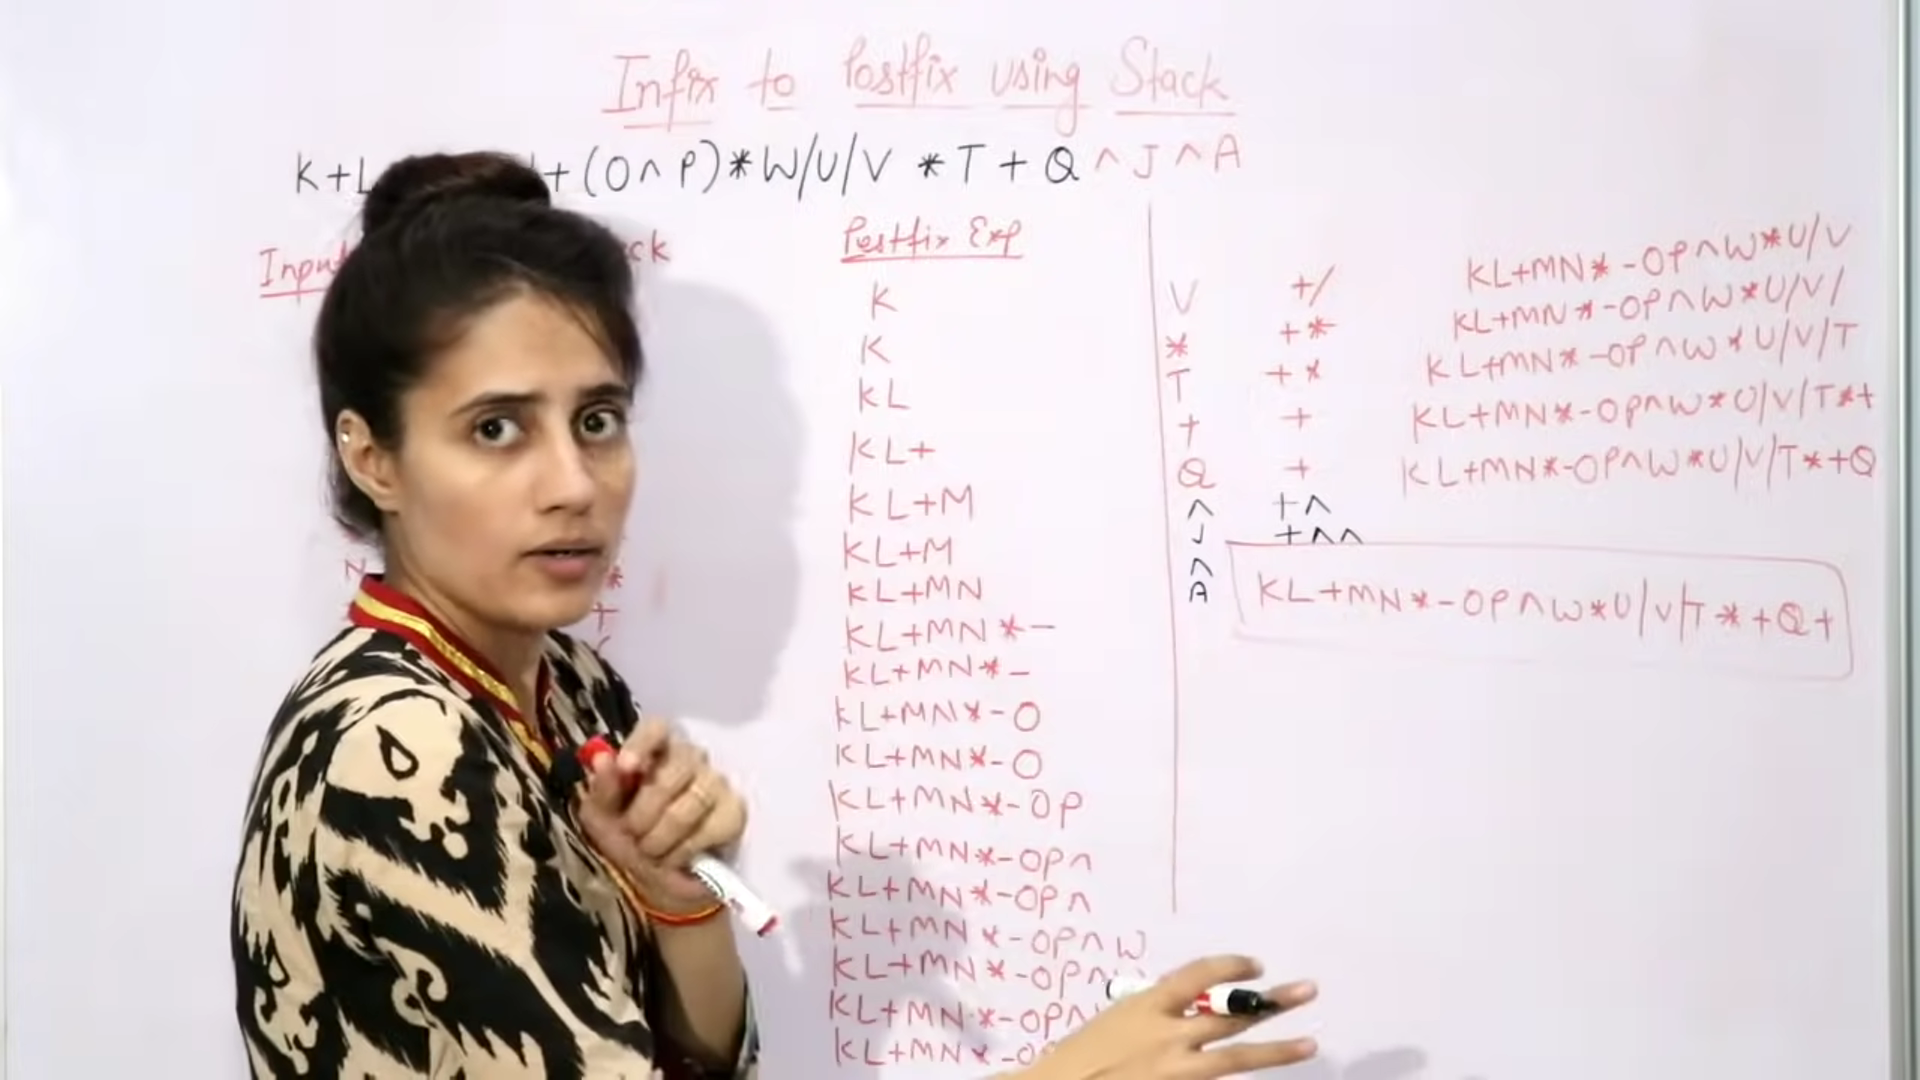 Infix to Postfix using Stack
K+L +(O^P)*W/U/V *T+Q^J^A
Input
Postfix Exp
K
K
KL
KL+
KL+M
KL+M
KL+MN
KL+MN*-
KL+MN*-
KL+MN*-O
KL+MN*-O
KL+MN*-OP
KL+MN*-OP^
KL+MN*-OP^
KL+MN*-OP^W
KL+MN*-OP^
KL+MN*-OP^
KL+MN*-O
N *
+
(
V +/ KL+MN*-OP^W*U/V
* +* KL+MN*-OP^W*U/V/
T +* KL+MN*-OP^W*U/V/T
+ + KL+MN*-OP^W*U/V/T*+
Q + KL+MN*-OP^W*U/V/T*+Q
^ +^
J +^^
^
A
KL+MN*-OP^W*U/V/T*+Q+